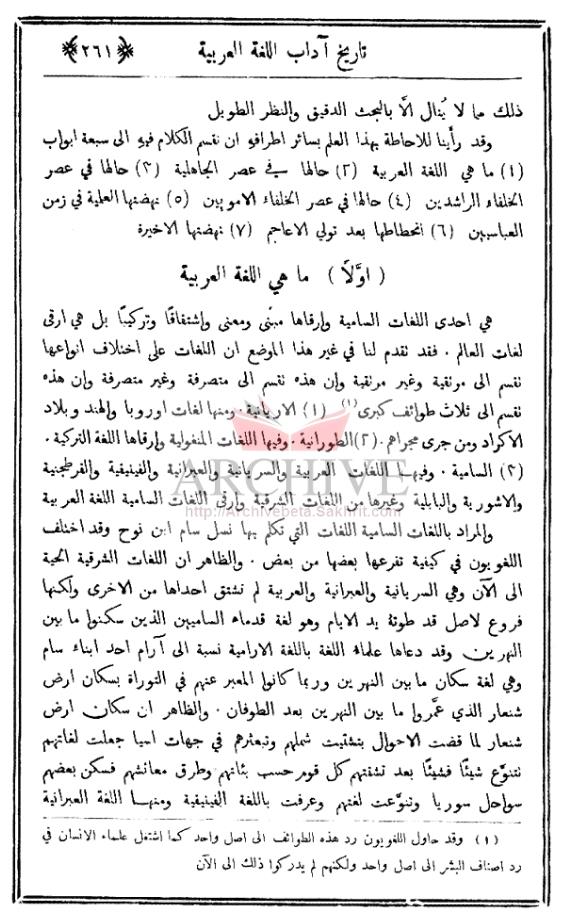 تاريخ آداب اللغة العربية
﴿٢٦١﴾
ذلك مما لا يُنال الَّا بالبحث الدقيق والنظر الطويل
وقد رأَينا للاحاطة بهذا العلم بسائر اطرافهِ ان نقسم الكلام فيهِ الى سبعة ابواب
(١) ما هي اللغة العربية (٢) حالها في عصر الجاهلية (٣) حالها في عصر
الخلفاء الراشدين (٤) حالها في عصر الخلفاء الامويين (٥) نهضتها العلمية في زمن
العباسيين (٦) انحطاطها بعد تولي الاعاجم (٧) نهضتها الاخيرة
(اوَّلًا) ما هي اللغة العربية
هي احدى اللغات السامية وارقاها مبنًى ومعنى واشتقاقًا وتركيبًا بل هي ارقى
لغات العالم . فقد تقدم لنا في غير هذا الموضع ان اللغات على اختلاف انواعها
تقسم الى مرتقية وغير مرتقية وان هذه تقسم الى متصرفة وغير متصرفة وان هذه
تقسم الى ثلاث طوائف كبرى(١) (١) الاريانية . ومنها لغات اوروبا والهند وبلاد
الاكراد ومن جرى مجراهم . (٢) الطورانية . وفيها اللغات المنغولية وارقاها اللغة التركية .
(٣) السامية . وفيها اللغات العربية والسريانية والعبرانية والفينيقية والقرطجنية
والاشورية والبابلية وغيرها من اللغات الشرقية وارقى اللغات السامية اللغة العربية
ARCHIVE
http://Archivebeta.Sakhrit.com
والمراد باللغات السامية اللغات التي تكلم بها نسل سام ابن نوح وقد اختلف
اللغويون في كيفية تفرعها بعضها من بعض . والظاهر ان اللغات الشرقية الحية
الى الآن وهي السريانية والعبرانية والعربية لم تشتق احداها من الاخرى ولكنها
فروع لاصل قد طوتهُ يد الايام وهو لغة قدماء الساميين الذين سكنوا ما بين
النهرين وقد دعاها علماء اللغة باللغة الارامية نسبة الى آرام احد ابناء سام
وهي لغة سكان ما بين النهرين وربما كانوا المعبر عنهم في التوراة بسكان ارض
شنعار الذي عمَّروا ما بين النهرين بعد الطوفان . والظاهر ان سكان ارض
شنعار لما قضت الاحوال بتشتيت شملهم وتبعثرهم في جهات اسيا جعلت لغاتهم
تتنوَّع شيئًا فشيئًا بعد تشتتهم كل قوم حسب بئاتهم وطرق معائشهم فسكن بعضهم
سواحل سوريا وتنوَّعت لغتهم وعرفت باللغة الفينيقية ومنهـا اللغة العبرانية
(١) وقد حاول اللغويون رد هذه الطوائف الى اصل واحد كما اشتغل علماء الانسان في
رد اصناف البشر الى اصل واحد ولكنهم لم يدركوا ذلك الى الآن